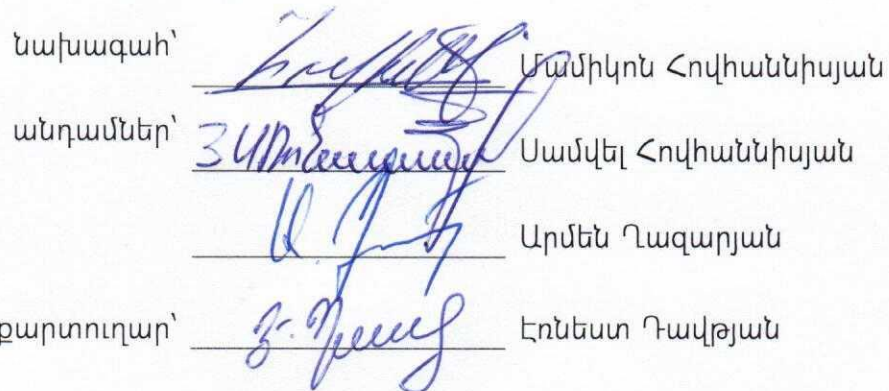 նախագահ՝ Մամիկոն Հովհաննիսյան
անդամներ՝ Սամվել Հովհաննիսյան
Արմեն Ղազարյան
քարտուղար՝ Էռնեստ Դավթյան